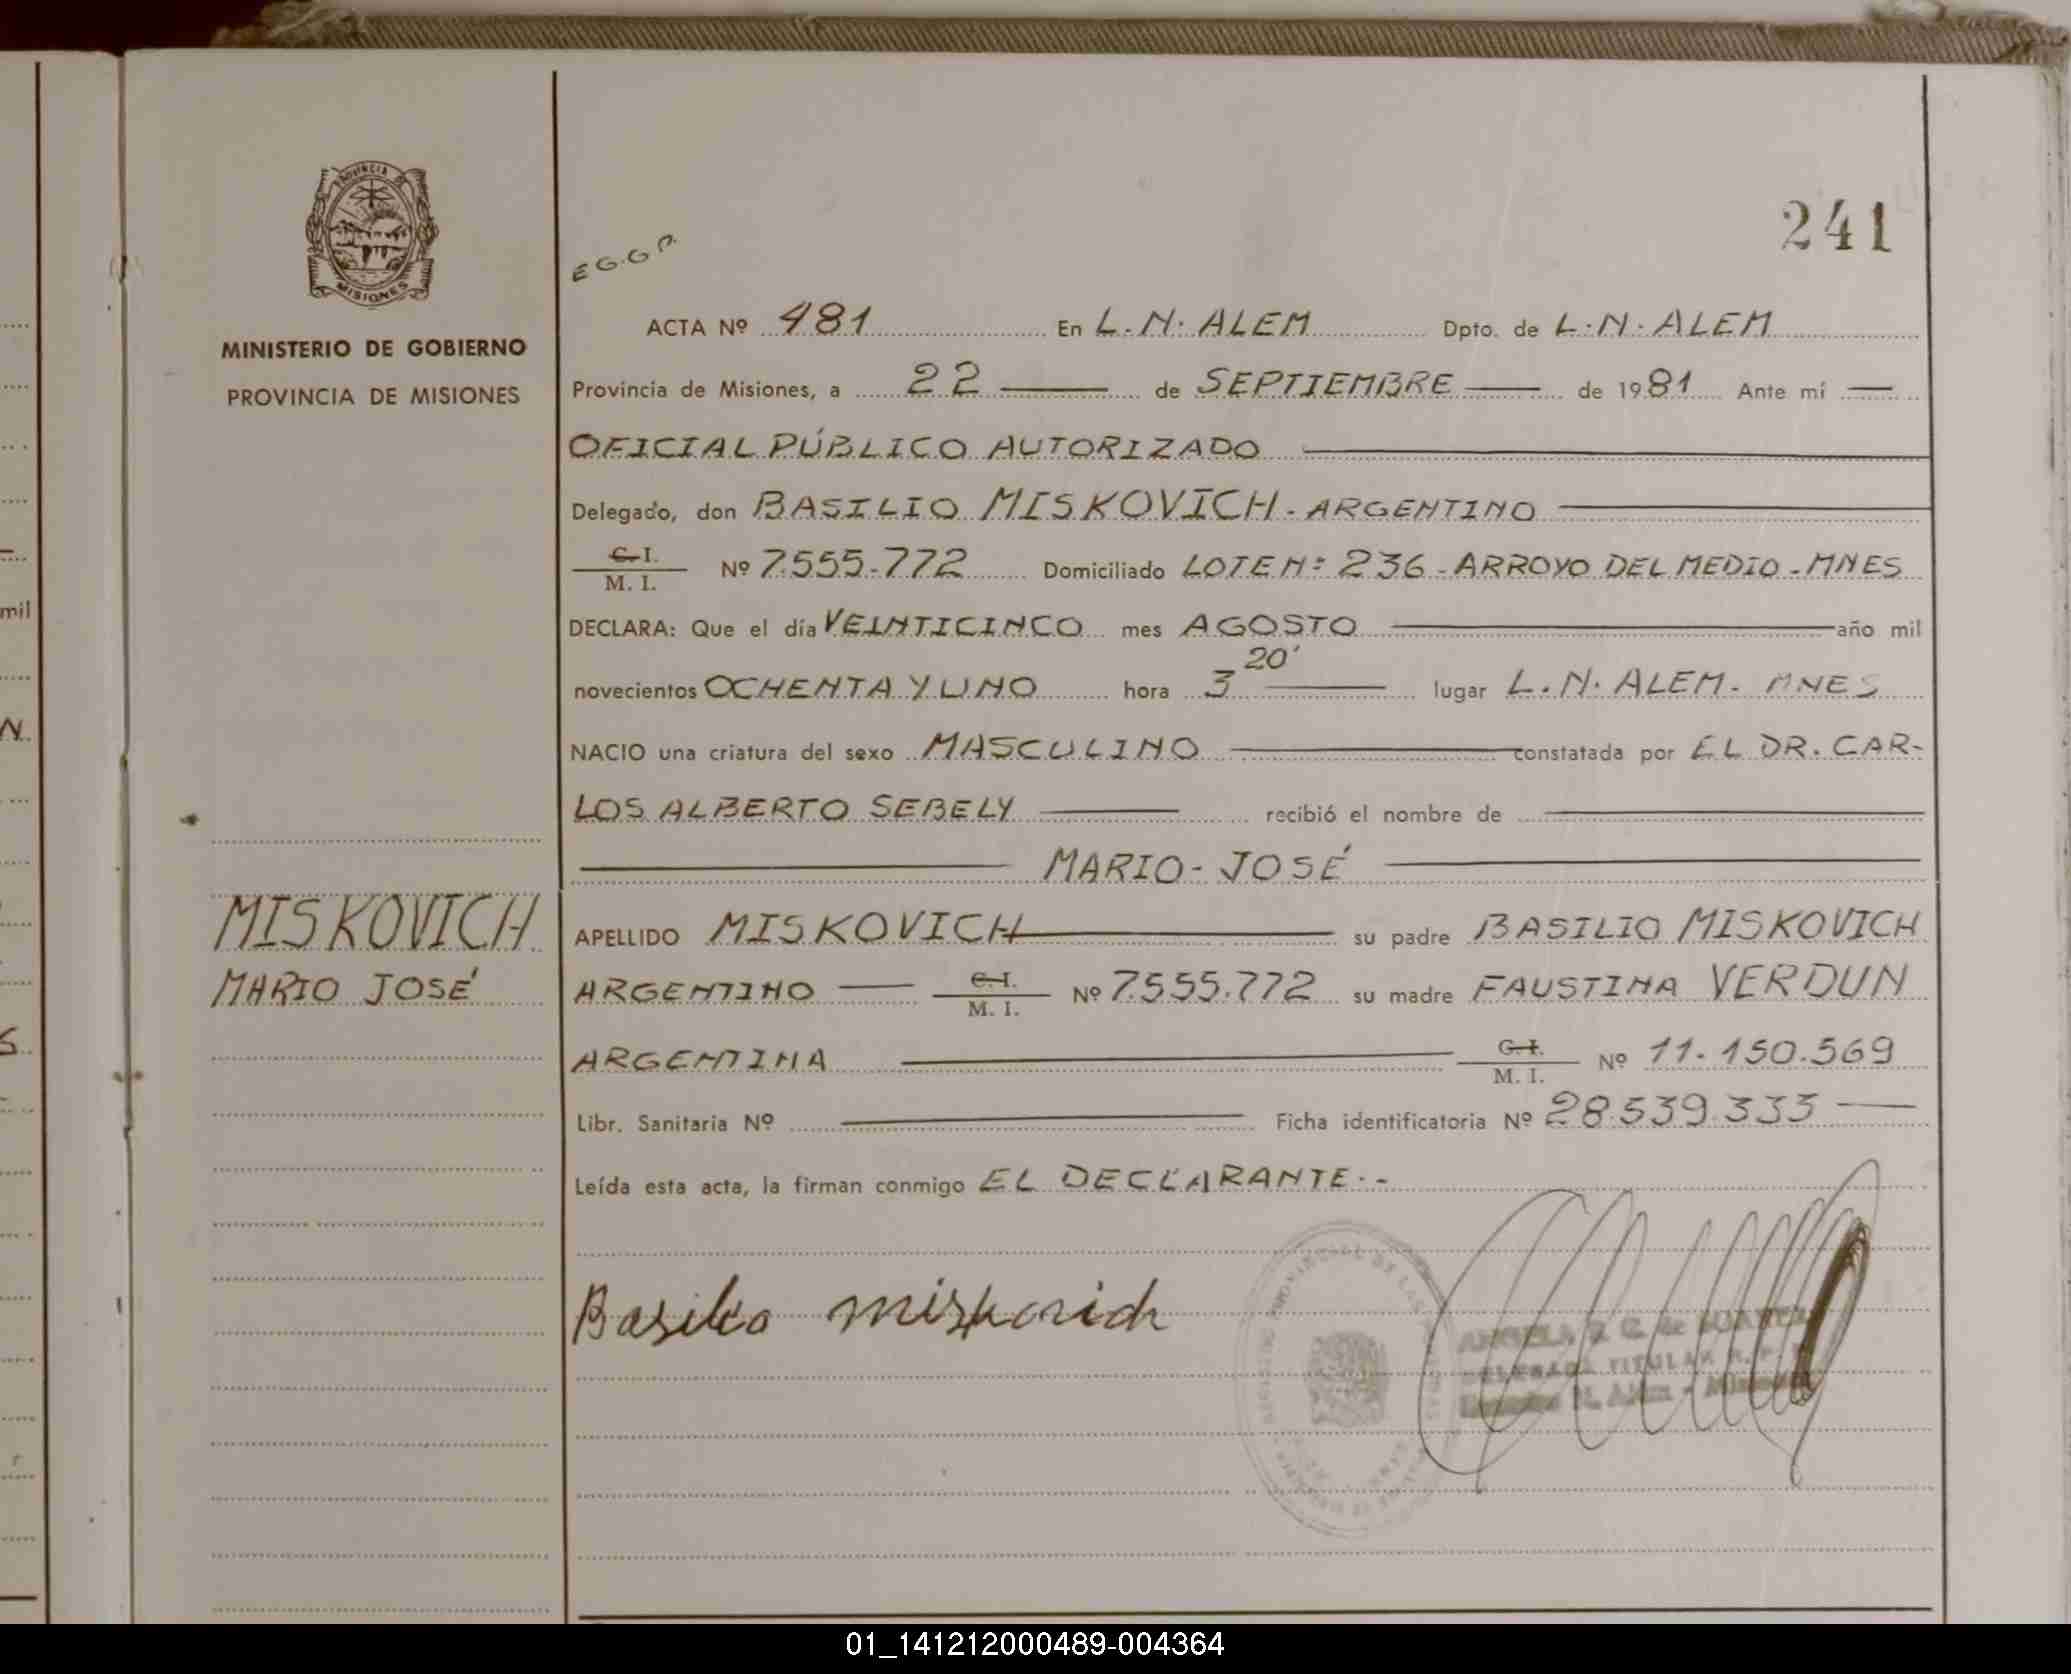 241
E G. G P.
PROVINCIA
MISIONES
MINISTERIO DE GOBIERNO
PROVINCIA DE MISIONES
ACTA Nº 481 En L. N. ALEM Dpto. de L. N. ALEM
Provincia de Misiones, a 22 de SEPTIEMBRE de 1981 Ante mí
OFICIAL PÚBLICO AUTORIZADO
Delegado, don BASILIO MISKOVICH - ARGENTINO
C. I.
M. I. Nº 7.555.772 Domiciliado LOTE Nº 236 - ARROYO DEL MEDIO - MNES
DECLARA: Que el día VEINTICINCO mes AGOSTO año mil
novecientos OCHENTA Y UNO hora 3 20' lugar L. N. ALEM - MNES
NACIO una criatura del sexo MASCULINO constatada por EL DR. CAR-
LOS ALBERTO SEBELY recibió el nombre de
MARIO - JOSÉ
MISKOVICH
MARIO JOSÉ
APELLIDO MISKOVICH su padre BASILIO MISKOVICH
ARGENTINO C. I.
M. I. Nº 7.555.772 su madre FAUSTINA VERDUN
ARGENTINA C. I.
M. I. Nº 11.150.569
Libr. Sanitaria Nº Ficha identificatoria Nº 28.539.333
Leída esta acta, la firman conmigo EL DECLARANTE.-
Basilio Miskovich
ANGELA de SUAREZ
DELEGADA TITULAR R. P.
N. Alem - Misiones
mil
01_141212000489-004364